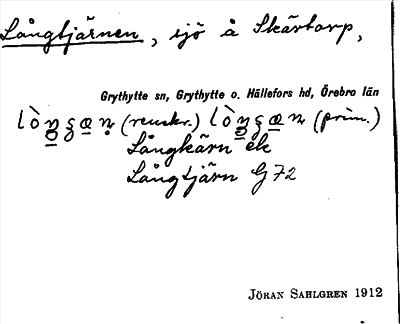 Långtjärnen, sjö å Skärtorp,
Grythytte sn, Grythytte o. Hällefors hd, Örebro län
(renskr.) (prim.)
Långkärn ek
Långtjärn G 72
JÖRAN SAHLGREN 1912